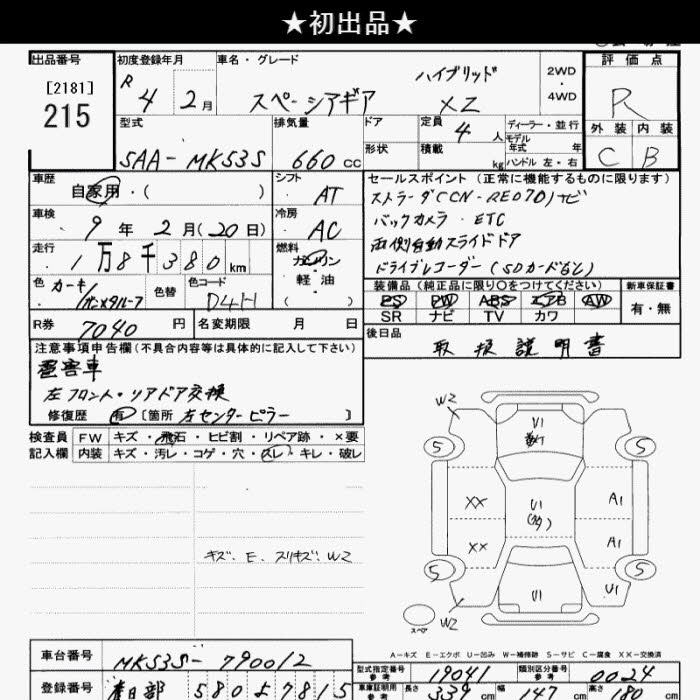 ★初出品★
出品番号
[2181]
215
初度登録年月
R 4 2月
車名・グレード
スペーシアギア ハイブリッド XZ
2WD
4WD
評価点
R
外装 内装
C B
型式
5AA-MK53S
排気量
660 cc
ドア
形状
定員
4人
積載
kg
ディーラー・並行
モデル年式 年
ハンドル 左・右
車歴
自家用・( )
シフト
AT
車検
9年 2月(20日)
冷房
AC
走行
1万8千380km
燃料
ガソリン
軽油
( )
色
カーキ/ガンメタルーフ
色替
色コード
D4H
R券
7040円
名変期限 月 日
セールスポイント(正常に機能するものに限ります)
ストラーダ(CN-RE07D)ナビ
バックカメラ・ETC
両側自動スライドドア
ドライブレコーダー(SDカード含む)
装備品(純正品に限り○をつけてください)
PS PW ABS エアB AW
SR ナビ TV カワ
新車保証書
有・無
後日品
取扱説明書
注意事項申告欄(不具合内容等は具体的に記入して下さい)
雹害車
左フロント・リアドア交換
修復歴 有 [箇所 左センターピラー ]
検査員記入欄
FW キズ・飛石・ヒビ割・リペア跡・×要
内装 キズ・汚レ・コゲ・穴・スレ・キレ・破レ
キズ・E・スリキズ・W2
W2
U1
5 5
XX U1(多) A1
XX A1
5 5
U1 U1
W2
スペア
A-キズ E-エクボ U-凹み W-補修跡 S-サビ C-腐食 XX-交換済
車台番号
MK53S-790012
型式指定番号 参考
19041
類別区分番号 参考
0024
登録番号
春日部 580 よ 7815
車庫証明用 参考
長さ 339cm 幅 147cm 高さ 180cm